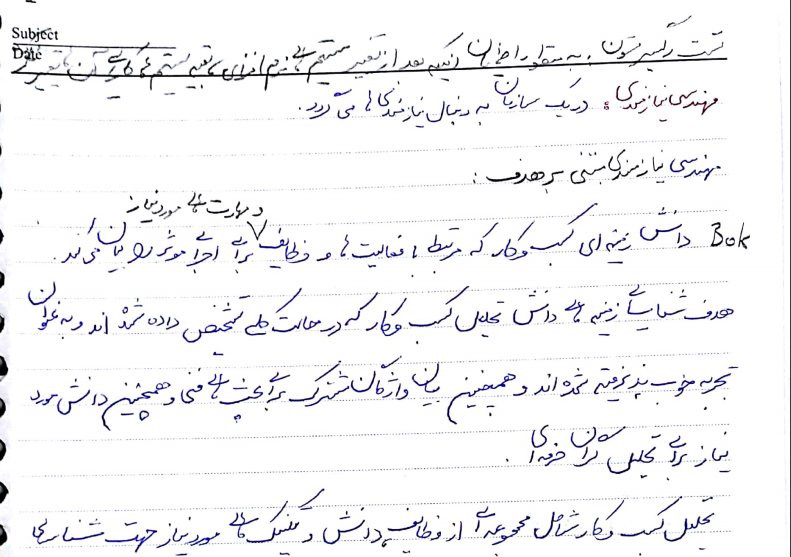 Subject
Date
تست رگرسیون: به منظور اطمینان از اینکه بعد از تغییر سیستم های نرم افزاری بقیه سیستم
مهندسی نیازمندی: در یک سازمان به دنبال نیازمندی ها می گردد.
مهندسی نیازمندی مبتنی بر هدف:
و مهارت های مورد نیاز
Bok دانش زمینه ای کسب و کار که مرتبط با فعالیت ها و وظایف برای اجرای موثر را بیان می کند.
هدف شناسایی زمینه های دانش تحلیل کسب و کار که در حالت کلی تشخیص داده شده اند و به عنوان
تجربه خوب پذیرفته شده اند و همچنین بیان واژگان مشترک برای بحث های فنی و همچنین دانش مورد
نیاز برای تحلیل گران حرفه ای.
تحلیل کسب و کار شامل مجموعه ای از وظایف، دانش و تکنیک های مورد نیاز جهت شناسایی